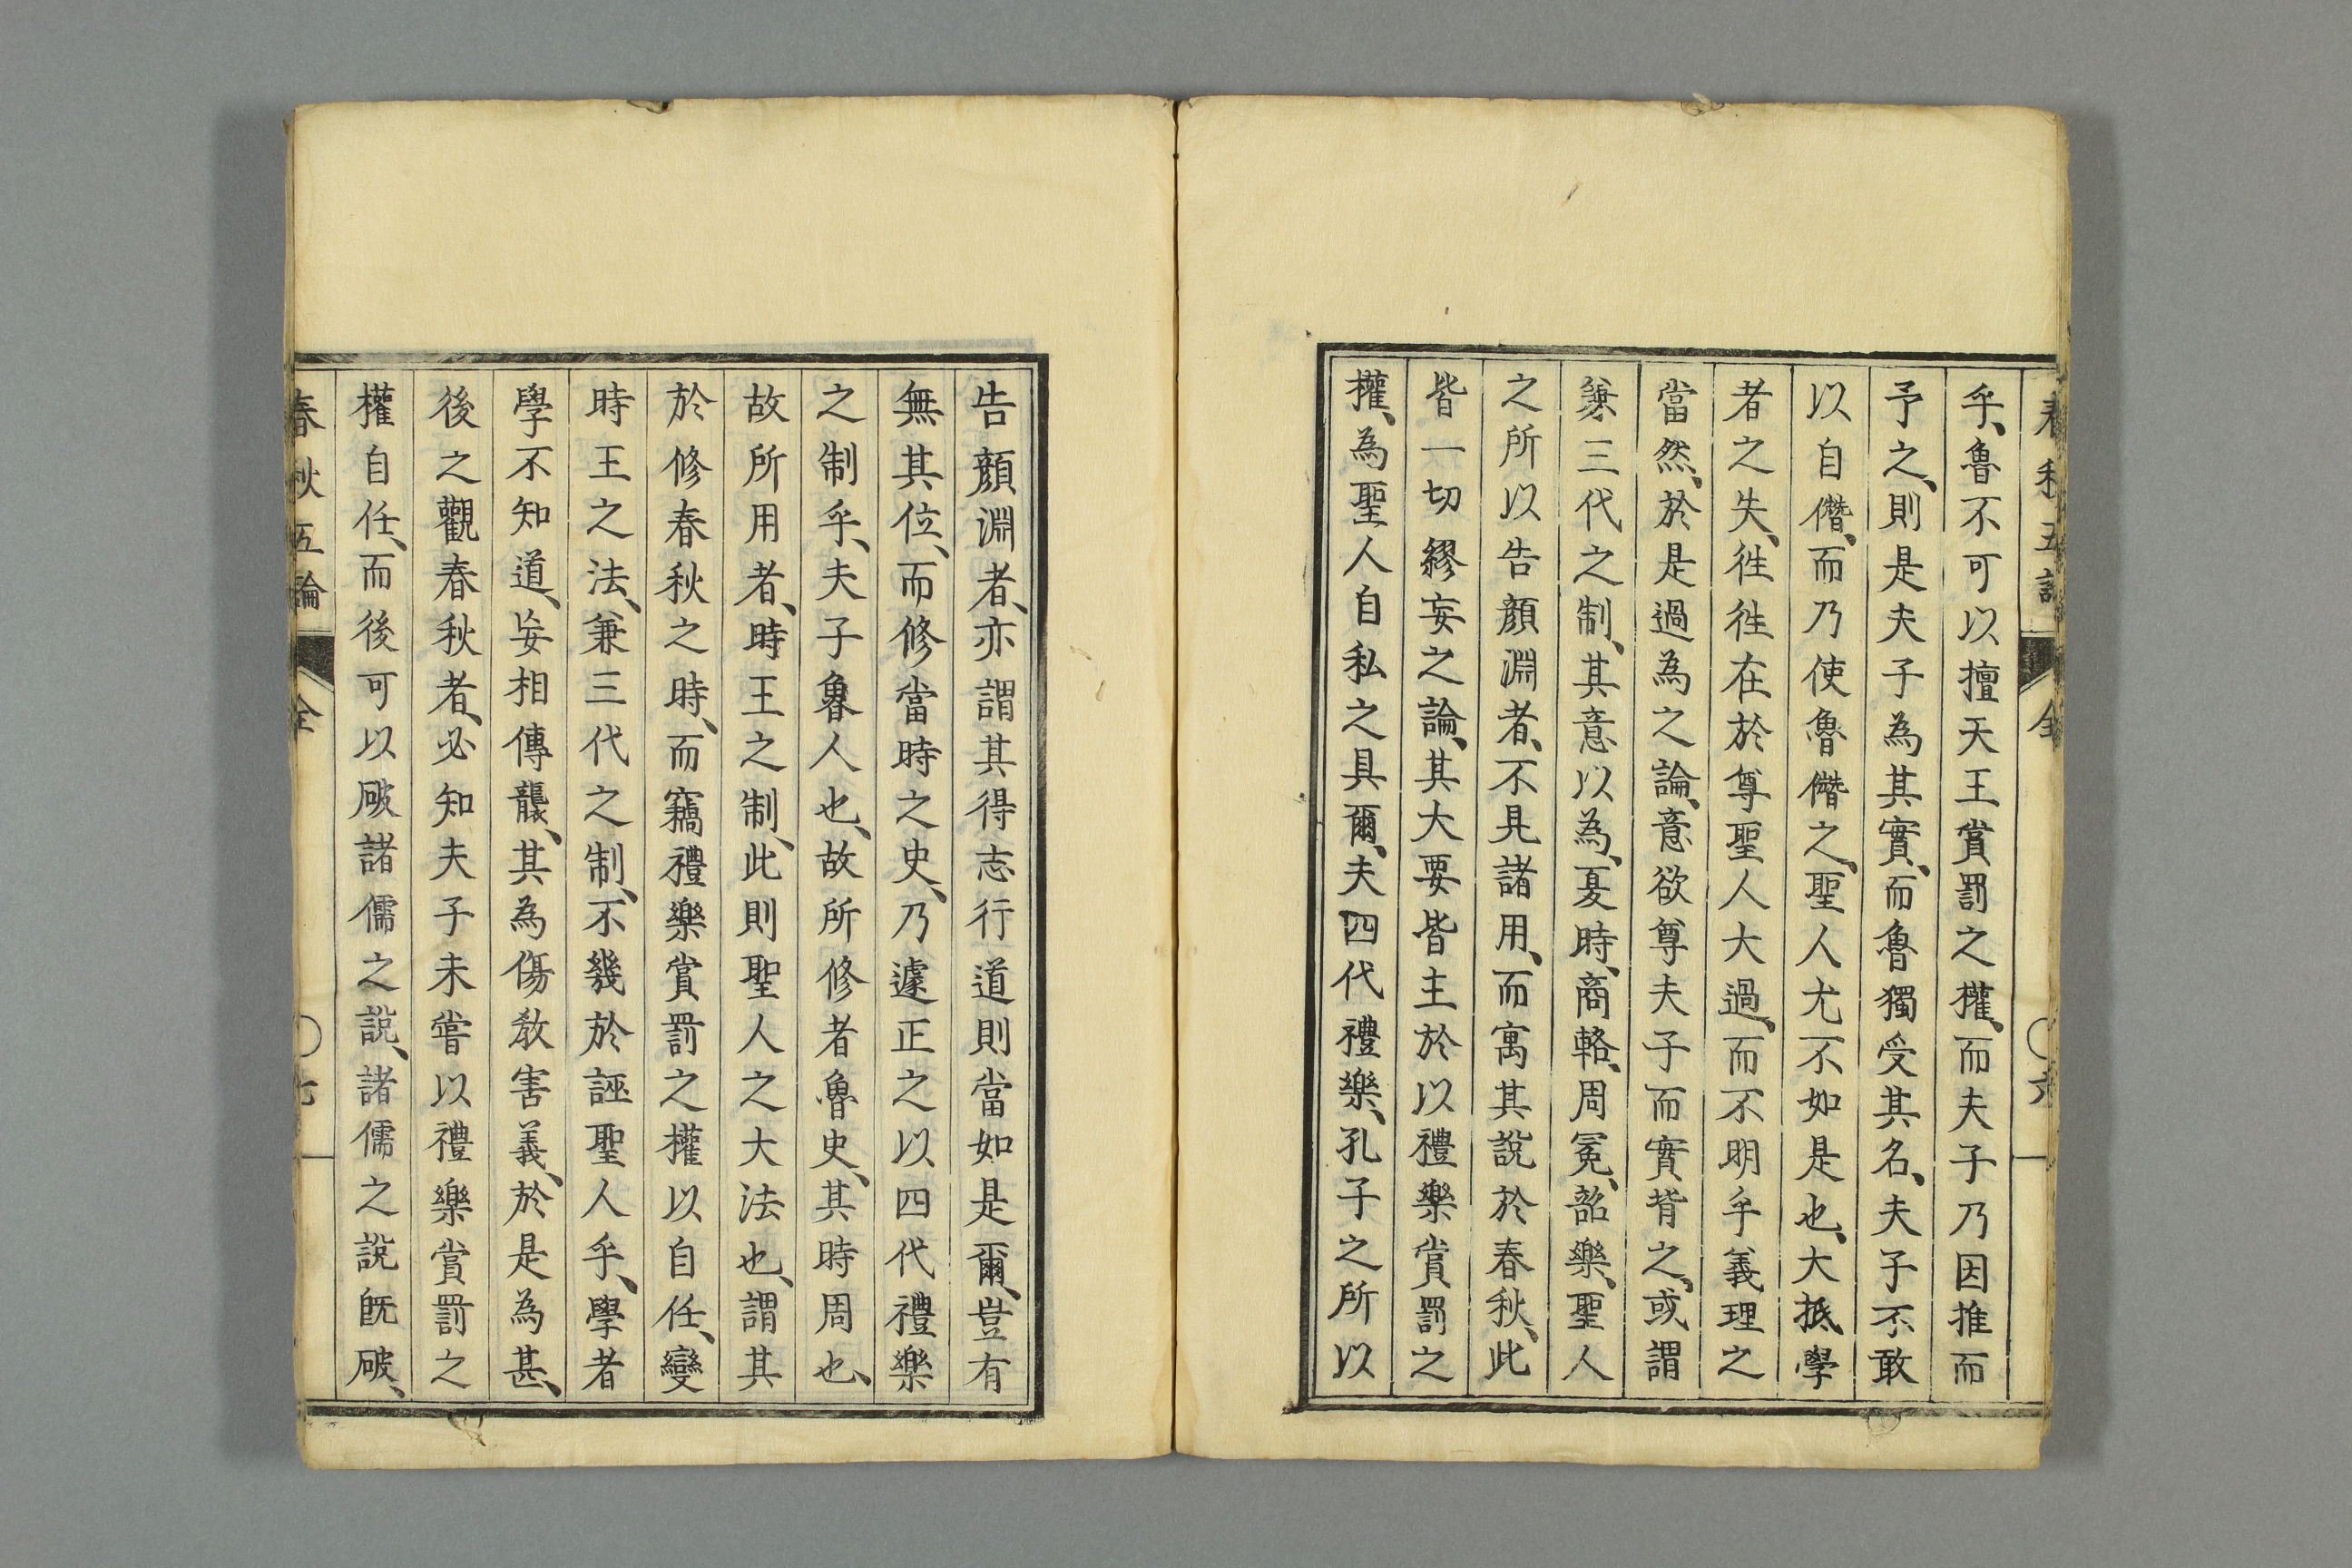 春秋五論 全 〇六
乎、魯不可以擅天王賞罰之權、而夫子乃因推而
予之、則是夫子為其實、而魯獨受其名、夫子不敢
以自僭、而乃使魯僭之、聖人尤不如是也、大抵學
者之失、徃徃在於尊聖人大過、而不明乎義理之
當然、於是過為之論、意欲尊夫子而實背之、或謂
兼三代之制、其意以為、夏時、商輅、周冕、韶樂、聖人
之所以告顏淵者、不見諸用、而寓其說於春秋、此
皆一切繆妄之論、其大要皆主於以禮樂賞罰之
權、為聖人自私之具爾、夫四代禮樂、孔子之所以
告顏淵者、亦謂其得志行道則當如是爾、豈有
無其位、而修當時之史、乃遽正之以四代禮樂
之制乎、夫子魯人也、故所修者魯史、其時周也、
故所用者、時王之制、此則聖人之大法也、謂其
於修春秋之時、而竊禮樂賞罰之權以自任、變
時王之法、兼三代之制、不幾於誣聖人乎、學者
學不知道、妄相傳襲、其為傷敎害義、於是為甚、
後之觀春秋者、必知夫子未嘗以禮樂賞罰之
權自任、而後可以破諸儒之說、諸儒之說既破、
春秋五論 全 〇七